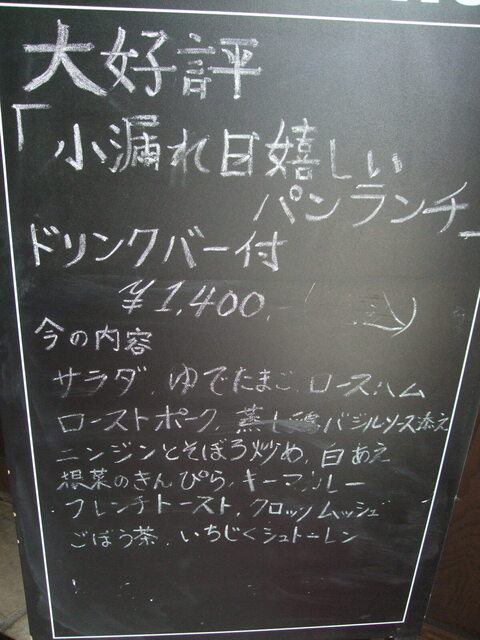 大好評
「小漏れ日嬉しい
パンランチ」
ドリンクバー付
¥1,400.
今の内容
サラダ、ゆでたまご、ロースハム
ローストポーク、蒸し鶏バジルソース添え
ニンジンとそぼろ炒め、白あえ
根菜のきんぴら、キーマカレー
フレンチトースト、クロックムッシュ
ごぼう茶、いちじくシュトーレン